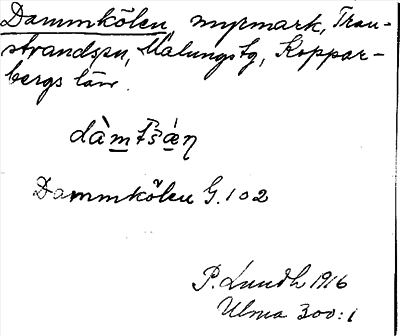 Dammkölen, myrmark, Tran-
strands sn, Malungs tg, Koppar-
bergs län.
dàm̲tšæ̲̀n
Dammkölen G. 102
P. Lundh 1916
Ulma 300:1